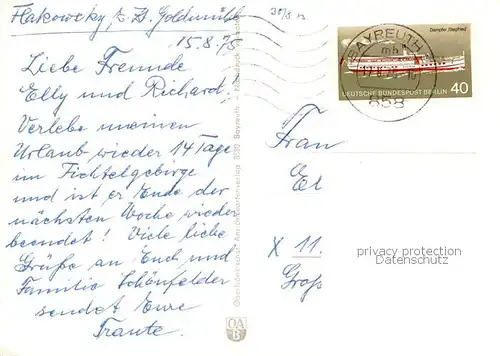 Flakowsky z. Zt. Goldmühl
15.8.75
Liebe Freunde
Elly und Richard!
Verlebe meinen
Urlaub wieder 14 Tage
im Fichtelgebirge
und ist er Ende der
nächsten Woche wieder
beendet! Viele liebe
Grüße an Euch und
Familie Schönfelder
sendet Eure
Traute.
OA
B
BAYREUTH
mh
858
Dampfer Siegfried
DEUTSCHE BUNDESPOST BERLIN 40
Frau
El
X 11.
Groß
privacy protection
Datenschutz